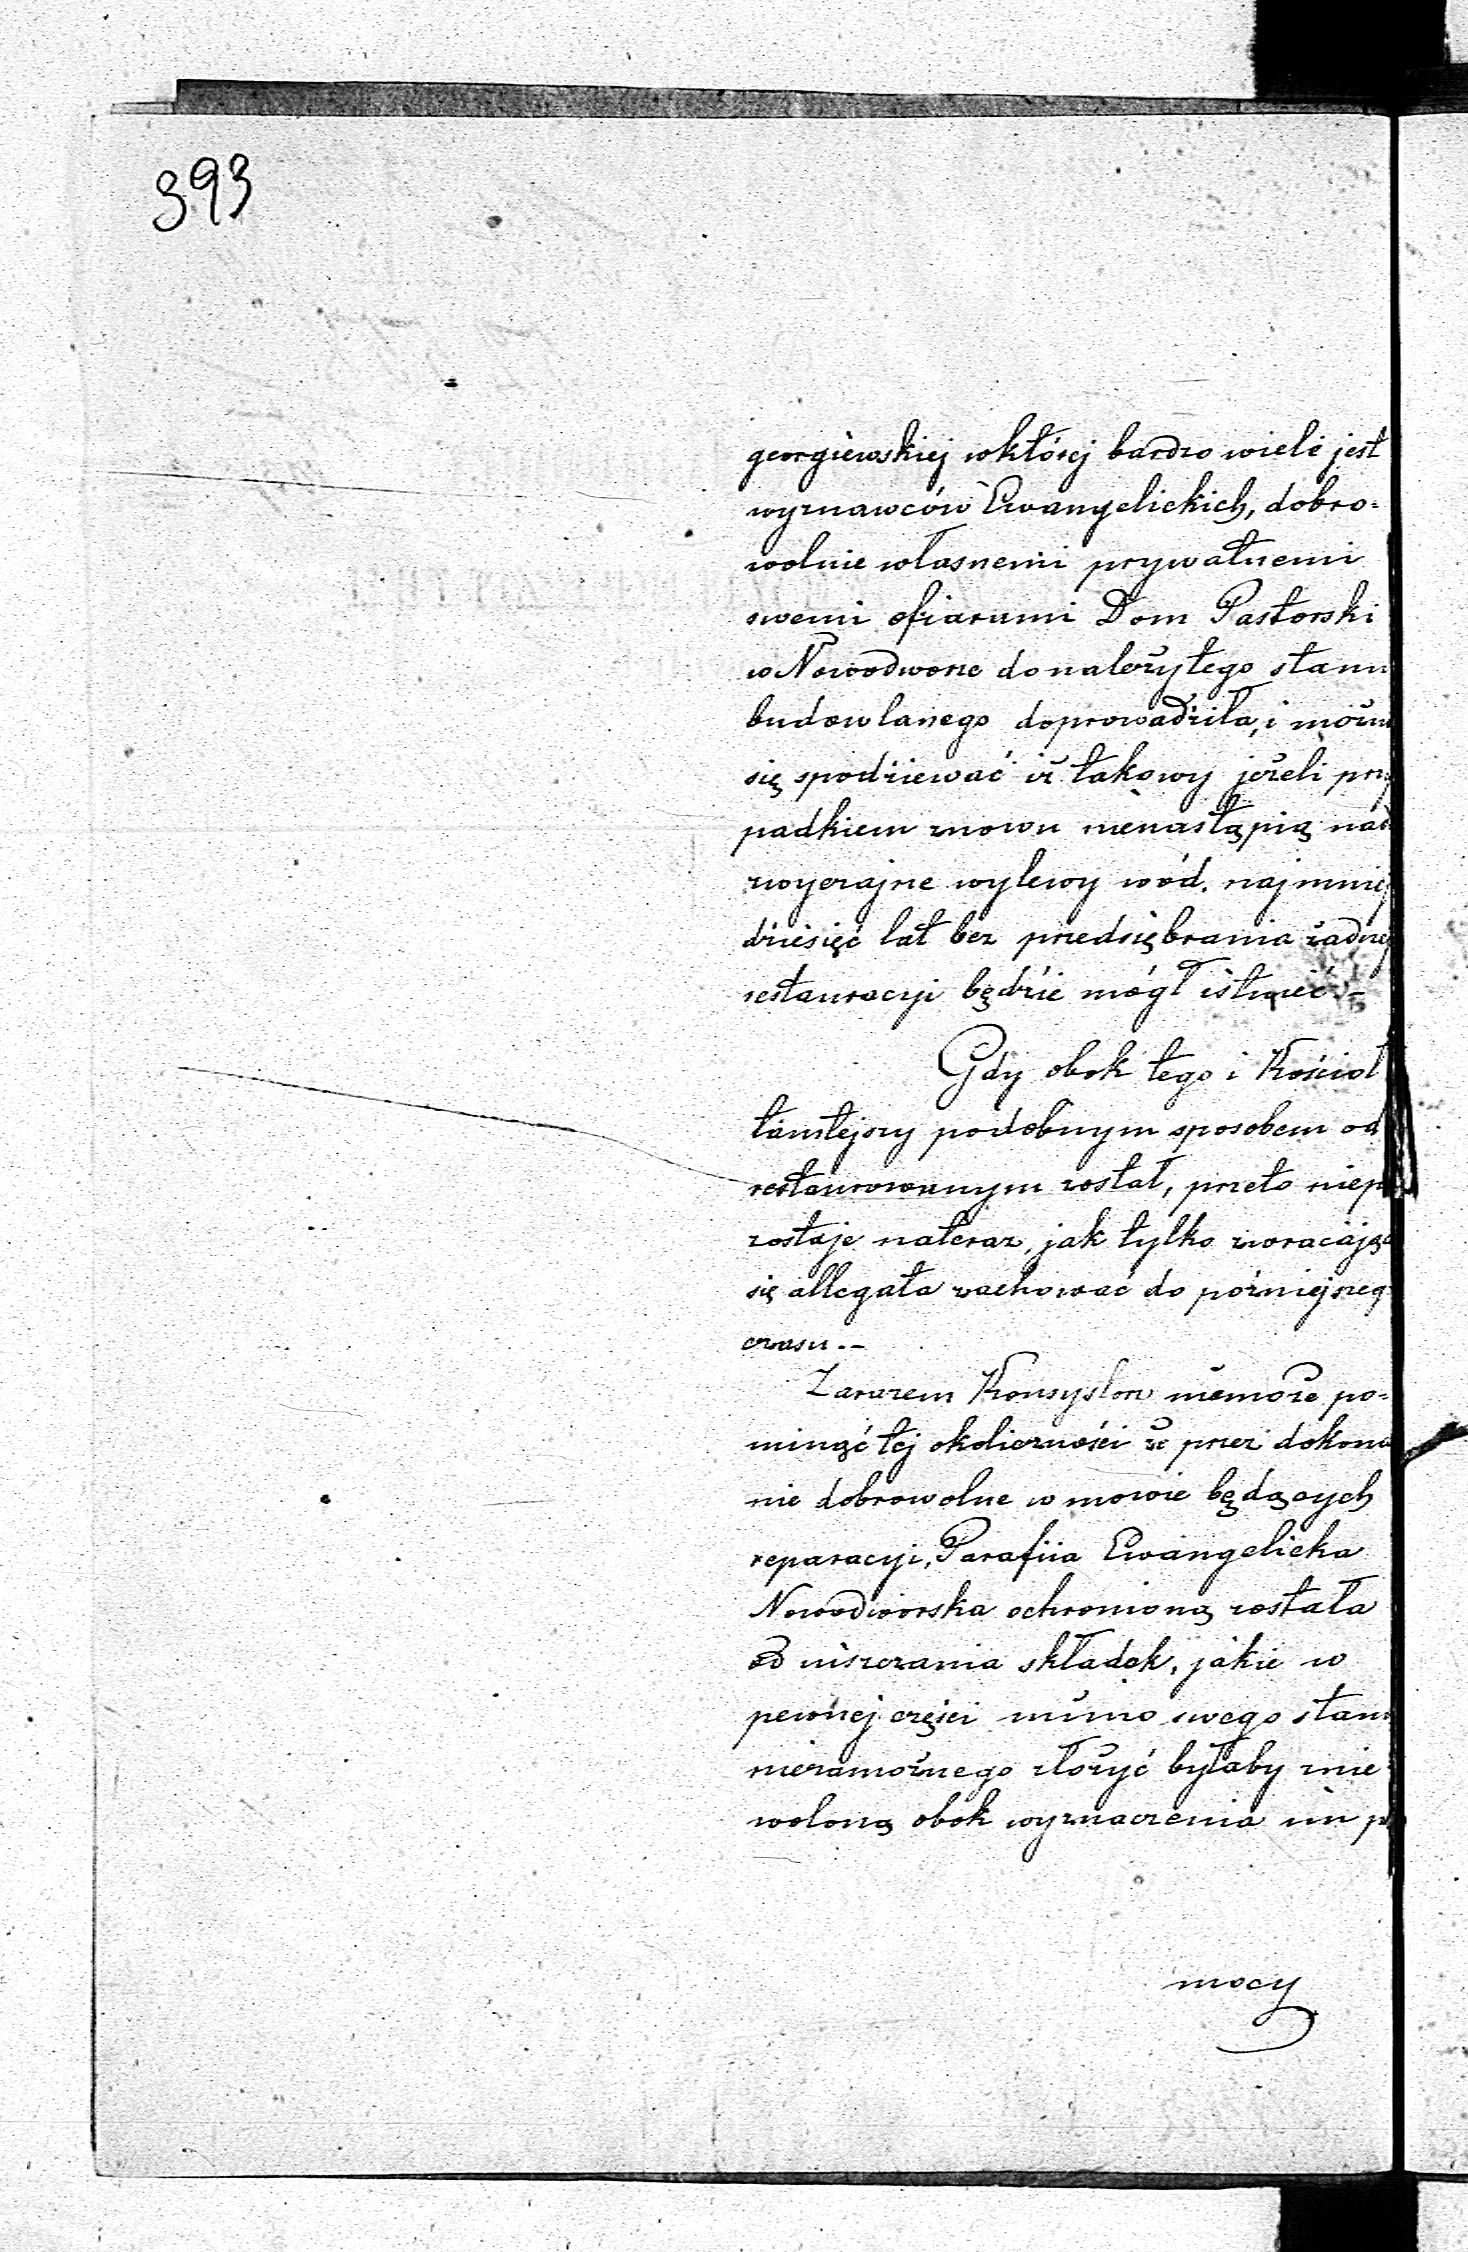 393
georgiewskiej w której bardzo wiele jest
wyznawców Ewangelickich, dobro=
wolnie własnemi prywatnemi
swemi ofiarami Dom Pastorski
w Nowodworze do należytego stanu
budowlanego doprowadziła, i możn
się spodziewać iż takowy jeżeli przy
padkiem znowu nienastąpią nad
zwyczajne wylewy wód, najmniej
dziesięć lat bez przedsiębrania żadnej
restauracyi będzie mógł istnieć.-
Gdy obok tego i Kościoł
tamtejszy podobnym sposobem od
restaurowanym został, przeto niepo
zostaje nateraz, jak tylko zwracając
się allegata zachować do późniejszeg
czasu.-
Zarazem Konsystorz niemoże po=
minąć tej okoliczności że przez dokona
nie dobrowolne w mowie będących
reparacyi, Parafiia Ewangelicka
Nowodworska ochronioną została
od uiszczania składek, jakie w
pewnej części mimo swego stanu
niezamożnego złożyć byłaby znie=
woloną obok wyznaczenia im po
mocy